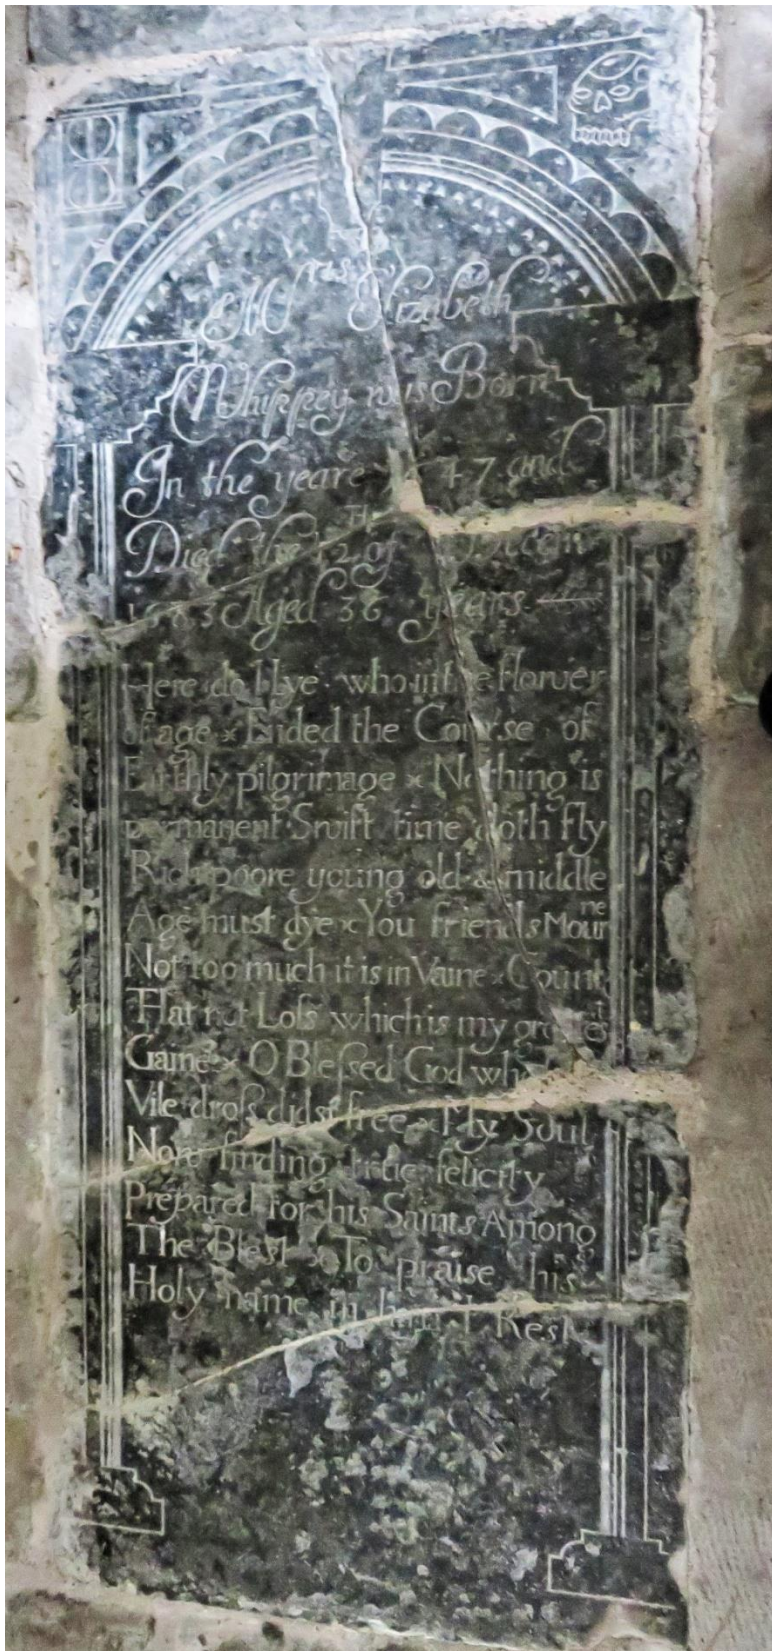 Mrs Elizabeth
Whippey was Born
In the yeare 47 and
Died the 12TH of Decem
1683 Aged 36 years
Here do I lye · who in the flower
of age × Ended the Course of
Earthly pilgrimage × Nothing is
permanent · Swift time doth fly
Rich poore young old & middle
Age must dye × You friends Mourne
Not too much it is in Vaine × Count
That not Loſs which is my greatest
Gaine × O Bleſsed God who
Vile droſs didst free × My Soul
Now finding true felicity
Prepared for his Saints Among
The Blest × To praise his
Holy name in him I Rest